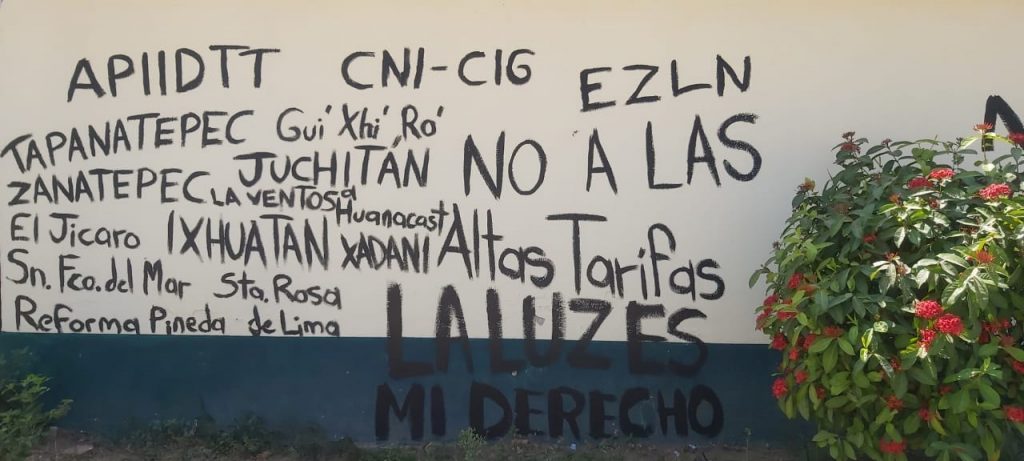 APIIDTT CNI-CIG EZLN
TAPANATEPEC Gui' Xhi' Ro'
ZANATEPEC JUCHITÁN
LA VENTOSA
El Jicaro IXHUATAN Huanacast
XADANI
Sn. Fco. del Mar Sta. Rosa
Reforma Pineda de Lima
NO A LAS
Altas Tarifas
LA LUZ ES
MI DERECHO